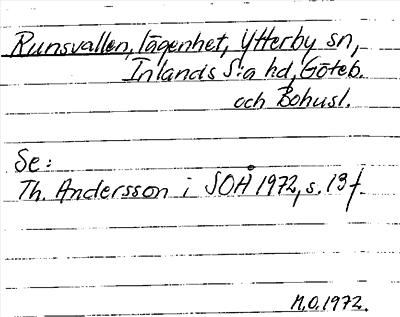 Runsvallen, lägenhet, Ytterby sn,
Inlands S:a hd, Göteb.
och Bohusl.
Se:
Th. Andersson i SOÅ 1972, s. 13 f.
N.O. 1972.